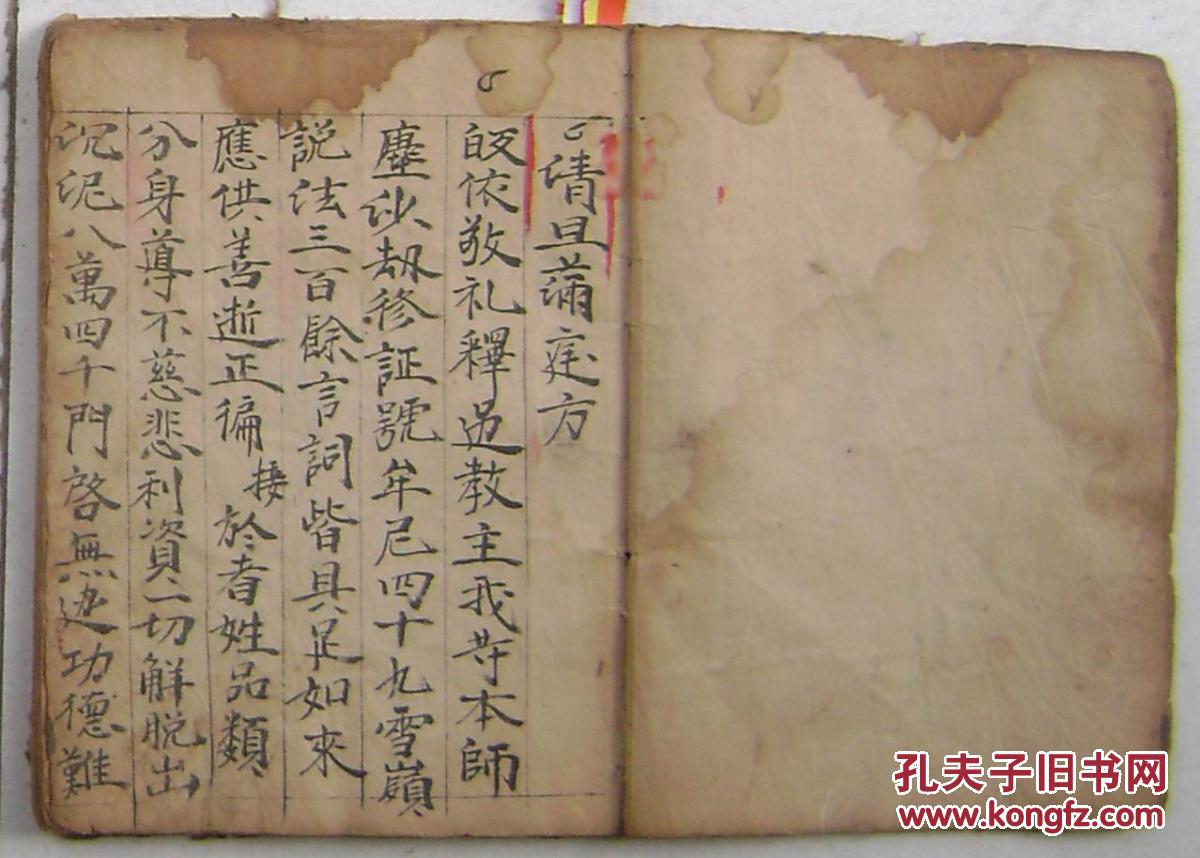 清旦蒲庭方
皈依敬礼釋迦教主我等本師
塵沙劫修証號牟尼四十九雪嶺
説法三百餘言詞皆具足如來
應供善逝正徧接於者姓品類
分身尊不慈悲利資一切解脱出
沉泥八萬四千門啓無边功德難
孔夫子旧书网
www.kongfz.com